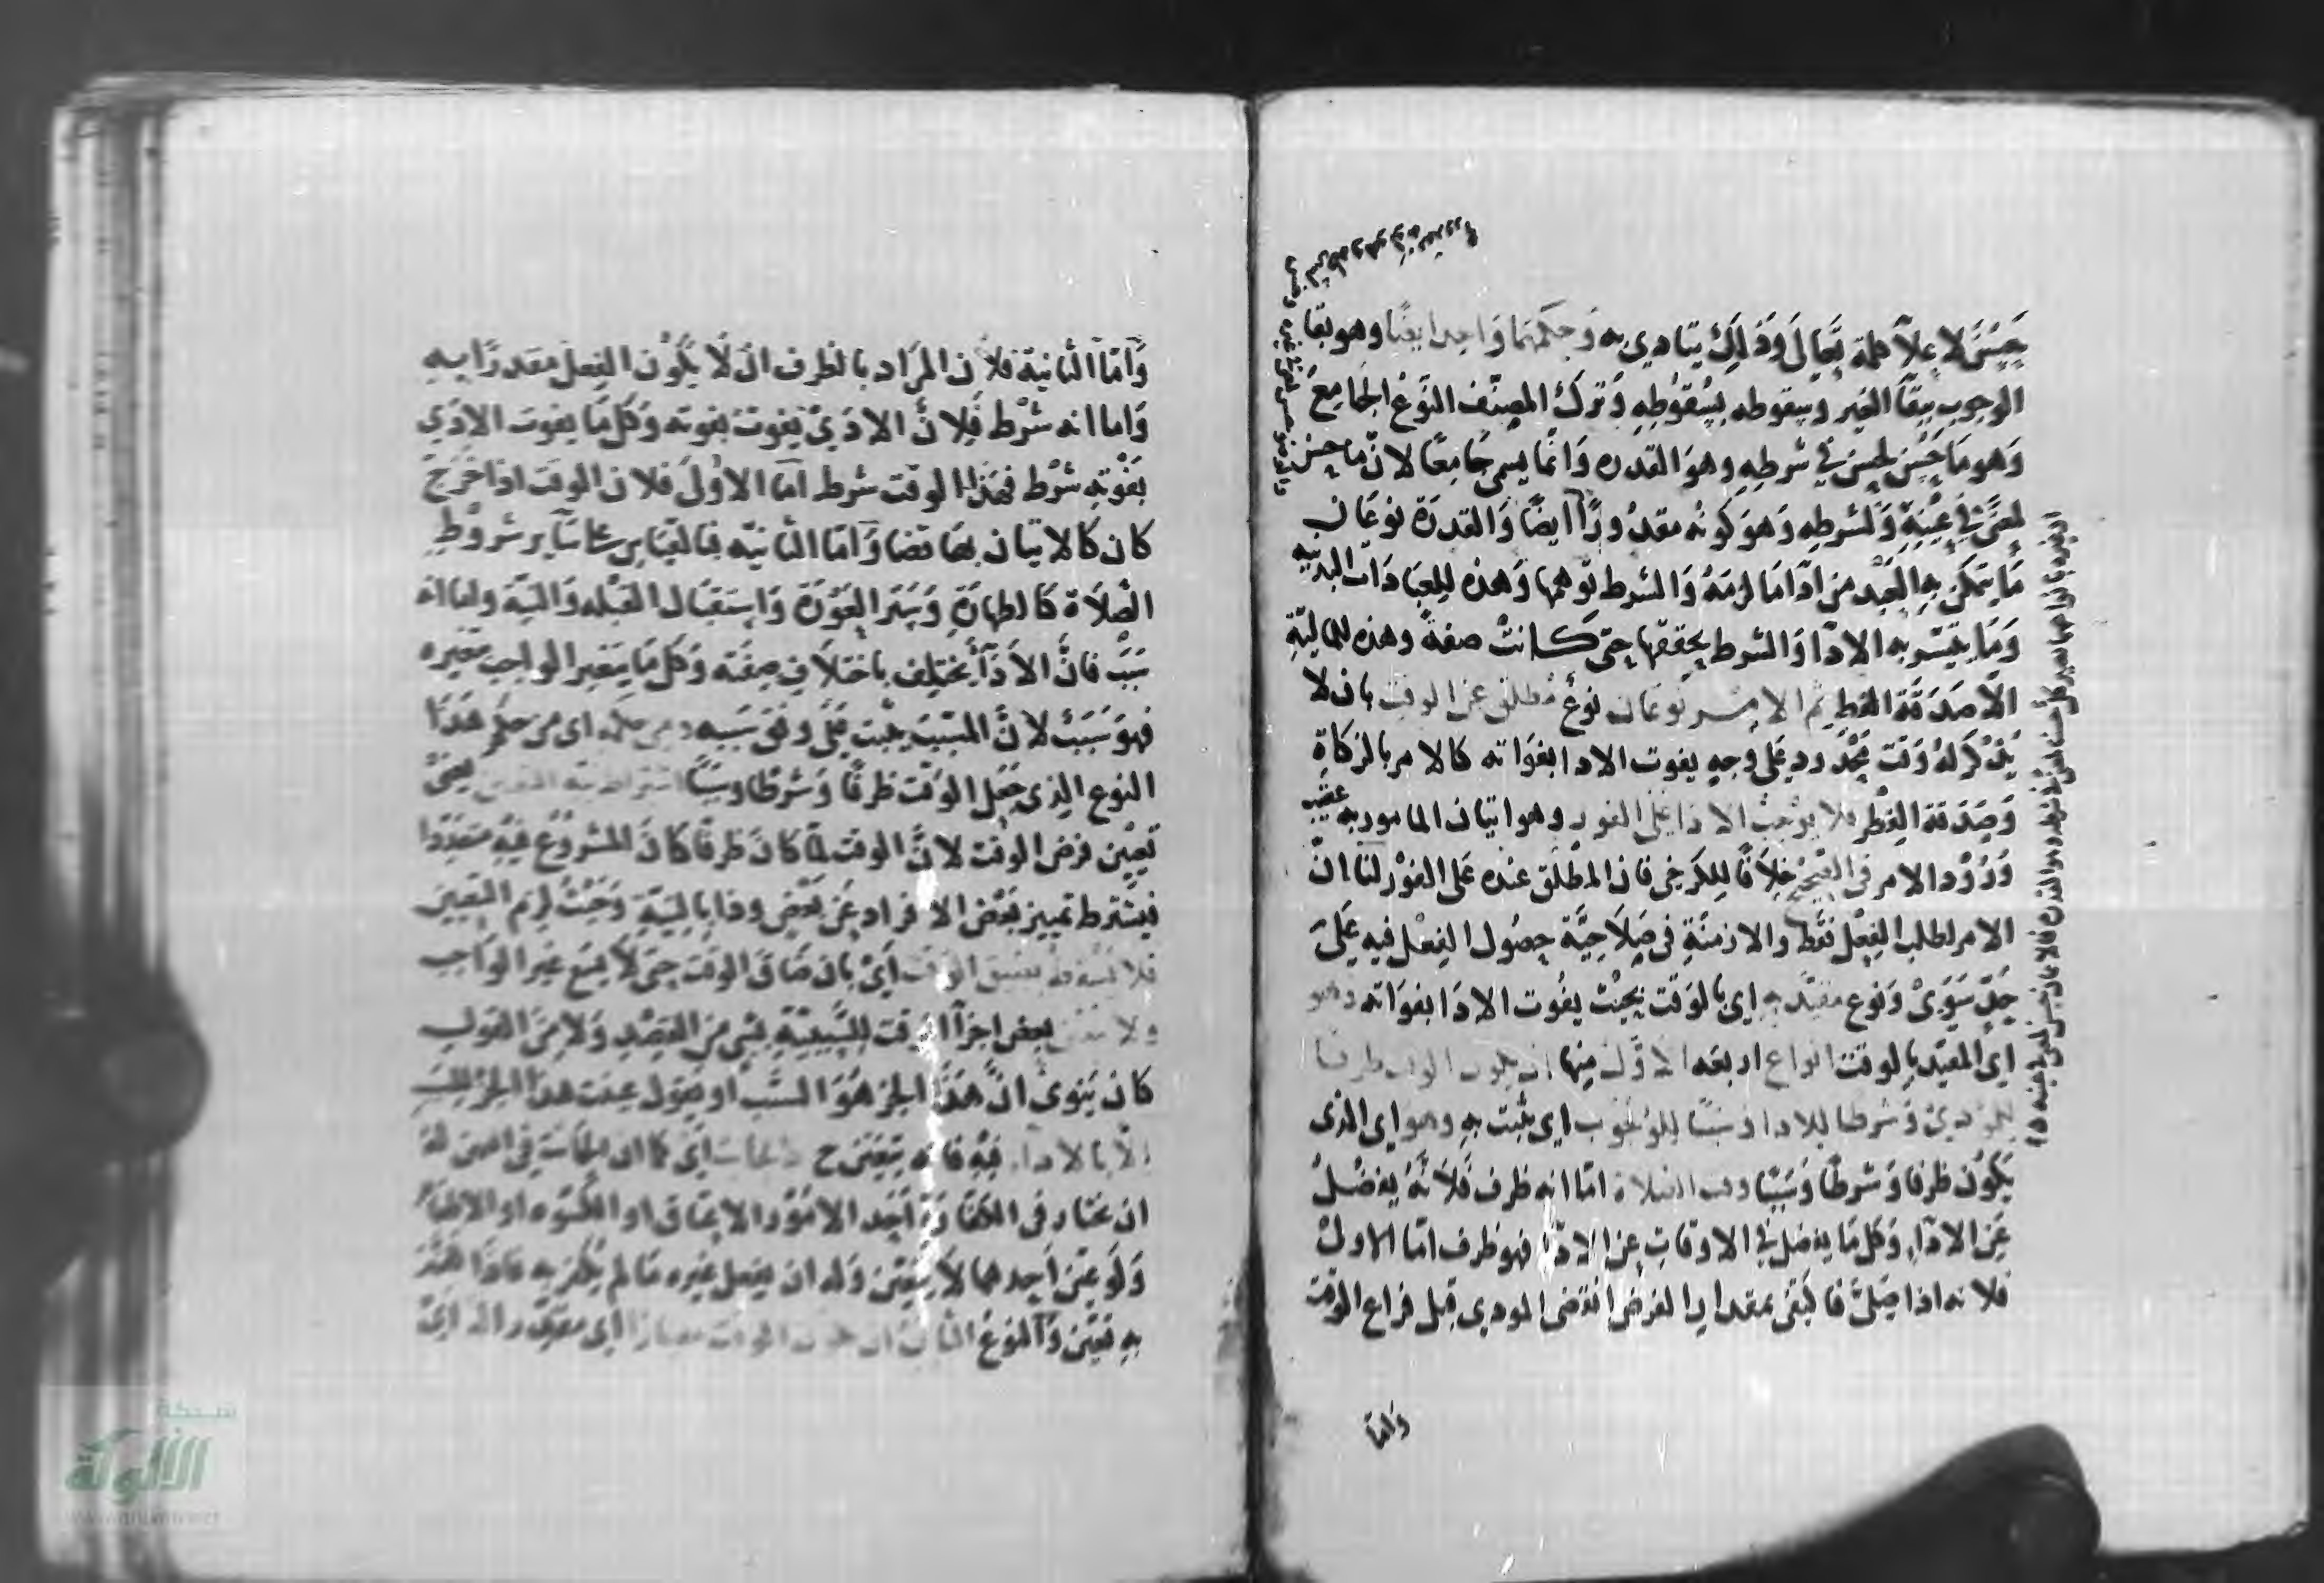 حسن لإعلاء كلمة تعالى وذلك يتأدى به وحكمهما واحد ايضا وهو بقا
الوجوب ببقا الغير وسقوطه بسقوطه وترك المصنف النوع الجامع
وهو ما حسن لحسن في شرطه وهو القدره وانما يسمى جامعا لان ما حسن
لمعنى في عينه ولشرطه وهو كونه مقدورا ايضا والقدرة نوعان
ما يتمكن به العبد من ادا ما لزمه والشرط توهمها وهذه للعبادات البدنيه
وما يتيسر به الادا والشرط تحققها حتى كانت صفة وهذه للماليّة
الا صدقة الفطر ثم الامر نوعان نوع مطلق عن الوقت بان لا
يذكر له وقت محدود على وجه يفوت الادا بفواته كالامر بالزكاة
وصدقة الفطر فلا يوجب الادا على الفور وهو اتيان المامور به عقيب
ورود الامر في الصحيح خلافا للكرخي فان المطلق عنده على الفور لنا ان
الامر لطلب الفعل فقط والازمنة في صلاحيّة حصول الفعل فيه على
حدّ سوىً ونوع مقيّد به اي بالوقت بحيث يفوت الادا بفواته وهو
اى المقيّد بالوقت انواع اربعه الاول منها ان يكون الوقت ظرفا
للمودىَ وشرطا للادا وسببا للوجوب اى يثبت به وهو اى الذى
يكون ظرفا وشرطا وسببا وقت الصلاة امّا انه ظرف فلانه يفضل
عن الاداء وكل ما يفضل في الاوقات عن الادا فهو ظرف امّا الاول
فلانه اذا صلى فاكتفى بمقدار الفرض انقضى المودى قبل فراغ الوقت
وامّا
وامّا الثانية فلان المراد بالظرف ان لا يكون الفعل مقدرا به
واما انه شرط فلان الادى يفوت بفوته وكل ما يفوت الادي
بفوته شرط فهذا الوقت شرط اما الاولَ فلان الوقت اذا خرج
كان كالاتيان بها قضا وامّا الثانيّه فبالقياس على ساير شروط
الصلاة كالطهارة وستر العورة واستقبال القبله والنيّة واما انه
سبب فانّ الادآ يختلف باختلاف صفته وكل ما يتغير الواجب بتغيره
فهو سبب لانّ المسبّب يثبت على وفق سببه ومن حكمه اى من حكم هذا
النوع الذى جعل الوقت ظرفا وشرطا وسببا اشتراط نية التعيين يعنىْ
تعيين فرض الوقت لانّ الوقت لمّا كان ظرفا كان المشروع فيه متعددا
فيشترط تمييز بعض الافراد عن بعض وذا بالنيّة وحيث لزم التعيين
فلا يسقط بضيق الوقت اىْ بان ضاق الوقت حتى لا يسع غير الواجب
ولا يتعين بعض اجزآ الوقت للسّببيّة بشي من القصد ولا من القول
كان ينوى انّ هذا الجز هو السّبب او يقول عينت هذا الجز للسبب
الا بالادآء فيه فانه يتعيّن ح كالحانث اىْ كما ان الحانث في اليمين له
ان يختار في الكفارة احد الامور الاعتاق او الكسوه او الاطعام
ولو عيّن احدهما لا يتعيّن وله ان يفعل غيره ما لم يكفر به فاذا كفّر
به تعيّن والنوع الثانى ان يكون الوقت معيارا اى مقدرا